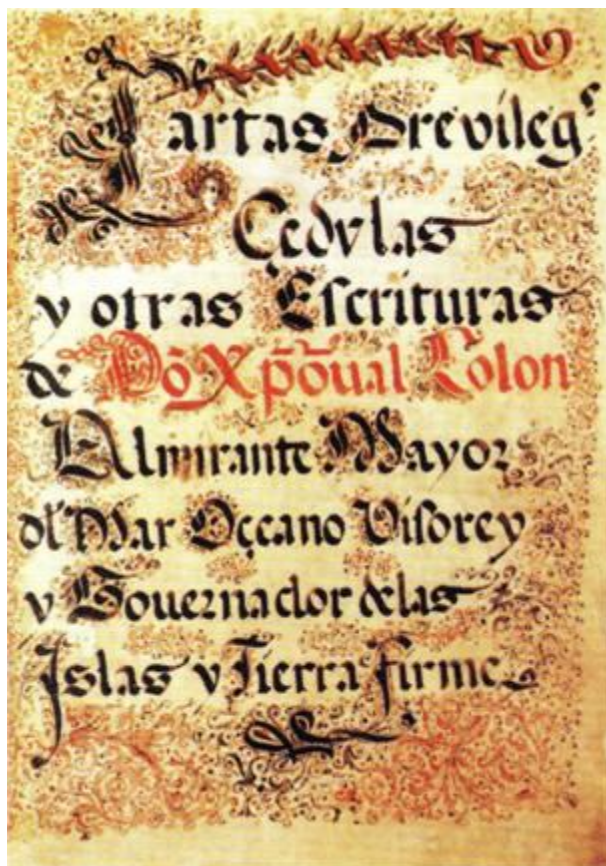 Cartas Previlegs
Çedulas
y otras Escrituras
de Dõ Xp̄õual Colon
Almirante Mayor
dl̄ Mar Oçeano Visorey
y Gouernador delas
Islas y Tierra firme